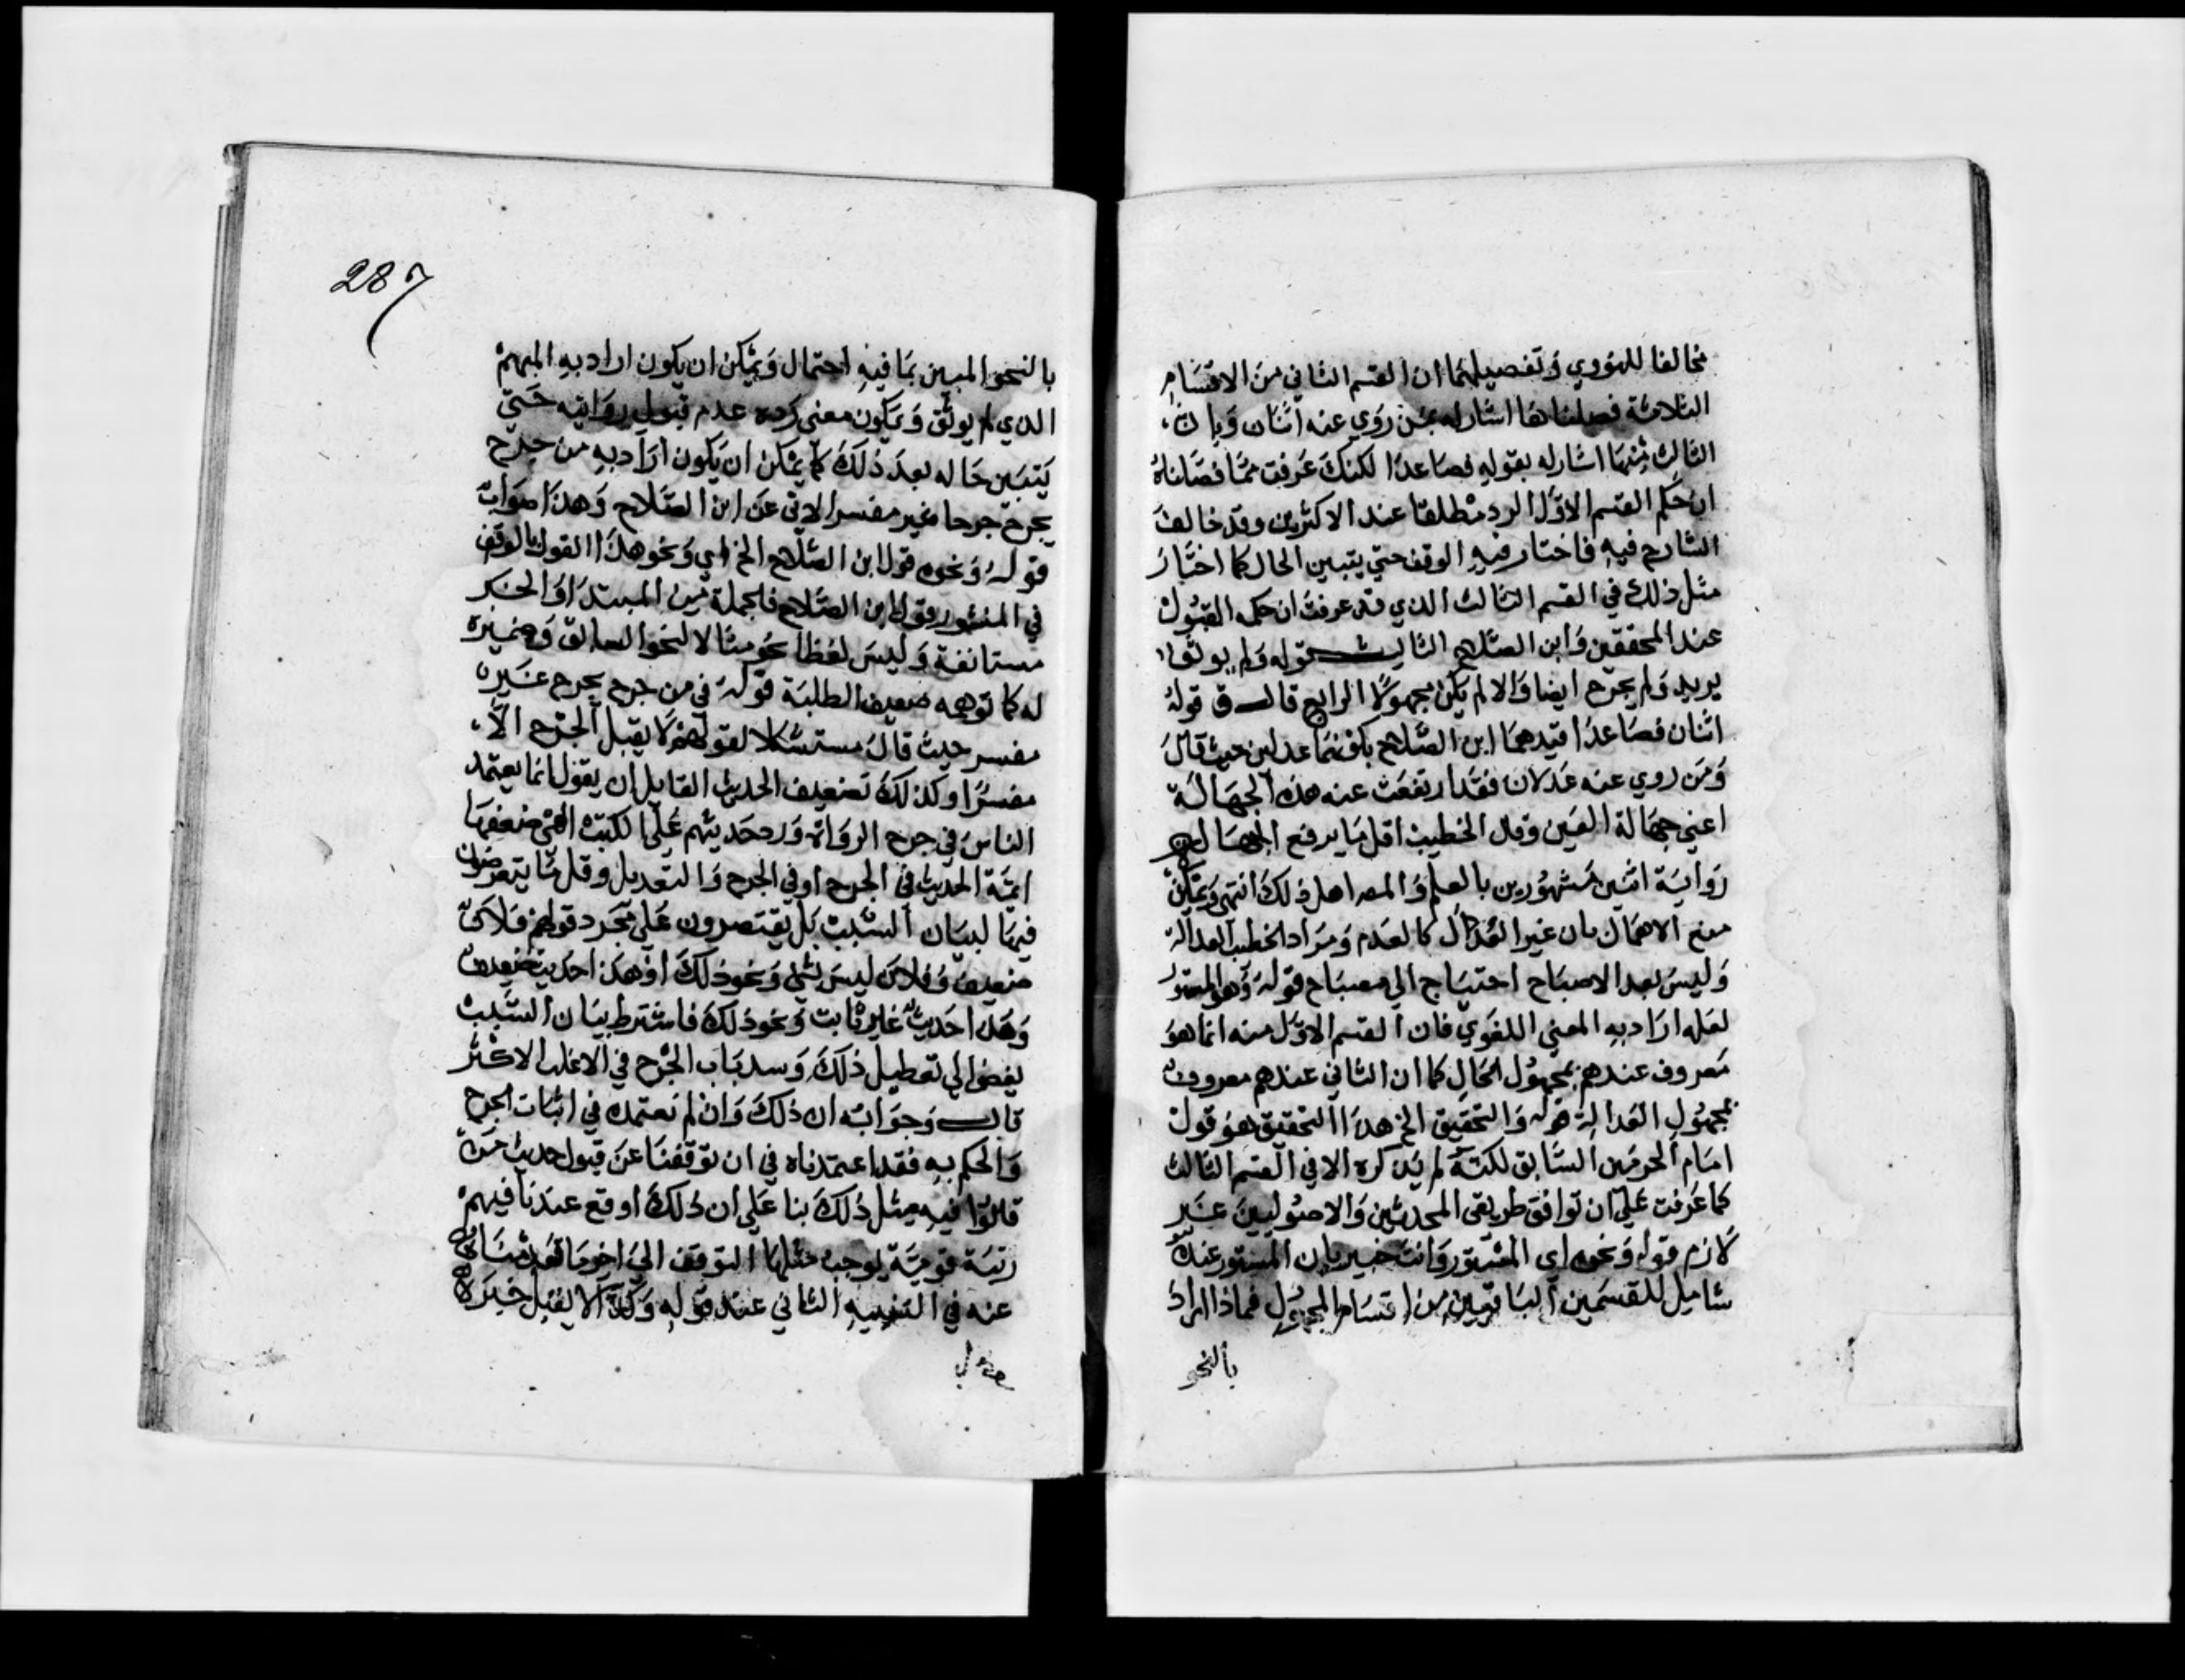 مخالفا للنووي وتفصيلهما ان القسم الثاني من الاقسام
الثلاثة فصلناها اشار له بمن روي عنه اثنان وبان
الثالث منها اشار له بقوله فصاعدا لكنك عرفت مما فصلناه
ان حكم القسم الاول الرد مطلقا عند الاكثرين وقد خالف
الشارح فيه فاختار فيه الوقف حتي يتبين الحال كما اختار
مثل ذلك في القسم الثالث الذي قد عرفت ان حكمه القبول
عند المحققين وابن الصلاح الثالث قوله ولم يوثق
يريد ولم يجرح ايضا والا لم يكن مجهولا الرابع قال ق قوله
اثنان فصاعدا قيدهما ابن الصلاح بكونهما عدلين حيث قال
ومن روي عنه عدلان فقد ارتفعت عنه هذه الجهالة
اعني جهالة العين وقال الخطيب اقل ما يرفع الجهالة
رواية اثنين مشهورين بالعلم والمصراهل ذلك انتهي ويمكن
منع الاهمال بان غير العدل كالعدم ومراد الخطيب العدالة
وليس بعد الاصباح احتياج الي مصباح قوله وهو المستور
لعله اراد به المعني اللغوي فان القسم الاول منه انما هو
معروف عندهم بمجهول الحال كما ان الثاني عندهم معروف
بمجهول العدالة قوله والتحقيق الخ هذا التحقيق هو قول
امام الحرمين السابق لكنه لم يذكره الا في القسم الثالث
كما عرفت علي ان توافق طريقي المحدثين والاصوليين غير
لازم قوله ونحوه اي المستور وانت خبير بان المستور عنده
شامل للقسمين الباقيين من اقسام المجهول فماذا اراد
بالنحو
287
بالنحو المبين بما فيه احتمال ويمكن ان يكون اراد به المبهم
الذي لم يوثق ويكون معني رده عدم قبول روايته حتي
يتبين حاله بعد ذلك كما يمكن ان يكون اراد به من جرح
بجرح جرحا غير مفسر الاتي عن ابن الصلاح وهذا صواب
قوله ونحوه قول ابن الصلاح الخ اي ونحو هذا القول بالوقف
في المستور قول ابن الصلاح فالجملة من المبتدا والخبر
مستانفة وليس لفظ نحو مثالا لنحو السابق وضميره
له كما توهمه ضعيف الطلبة قوله في من جرح بجرح غير
مفسر حيث قال مستشكلا لقولهم لا يقبل الجرح الا
مفسرا وكذلك تضعيف الحديث القايل ان يقول انما يعتمد
الناس في جرح الرواة ورد حديثهم علي الكتب التي صنفها
ايمة الحديث في الجرح او في الجرح والتعديل وقل ما يتعرضون
فيها لبيان السبب بل يقتصرون علي مجرد قولهم فلان
ضعيف وفلان ليس بشي ونحو ذلك او هذا حديث ضعيف
وهذا حديث غير ثابت ونحو ذلك فاشتراط بيان السبب
يفضي الي تعطيل ذلك وسد باب الجرح في الاغلب الاكثر
قال وجوابه ان ذلك وان لم نعتمده في اثبات الجرح
والحكم به فقد اعتمدناه في ان توقفنا عن قبول حديث من
قالوا فيه مثل ذلك بنا علي ان ذلك اوقع عندنا فيهم
ريبة قوية يوجب مثلها التوقف الي اخر ما
عنه في التنبيه الثاني عند قوله وكذا لا يقبل خبر